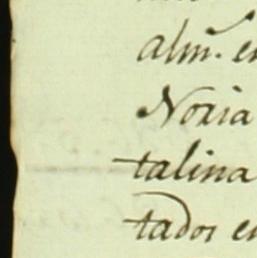 alm. en
Noria
talina
tados en